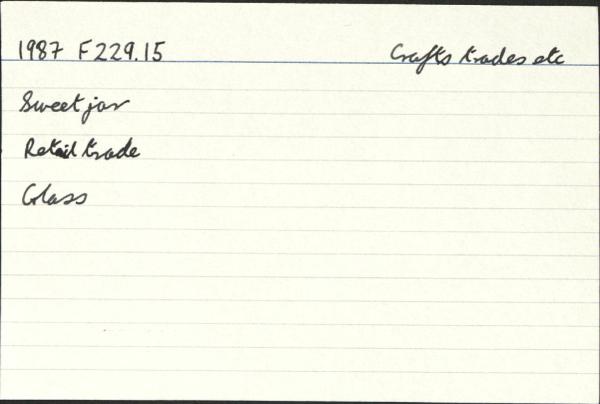 1987 F229.15 Crafts trades etc
Sweet jar
Retail trade
Glass